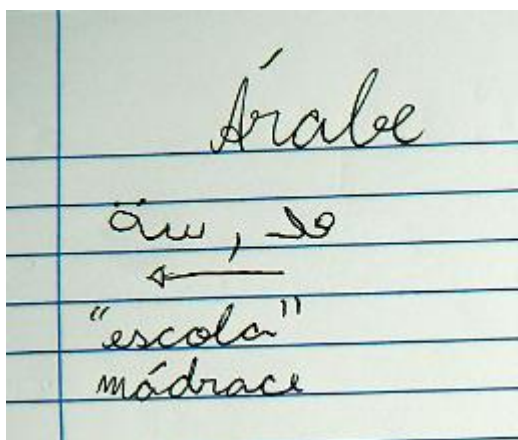 Árabe
مدرسة
"escola"
mádrace